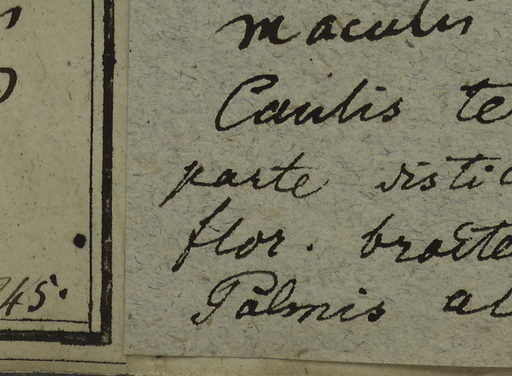 maculis
Caulis te
parte distic
flor. bracte
Palmis al
845.